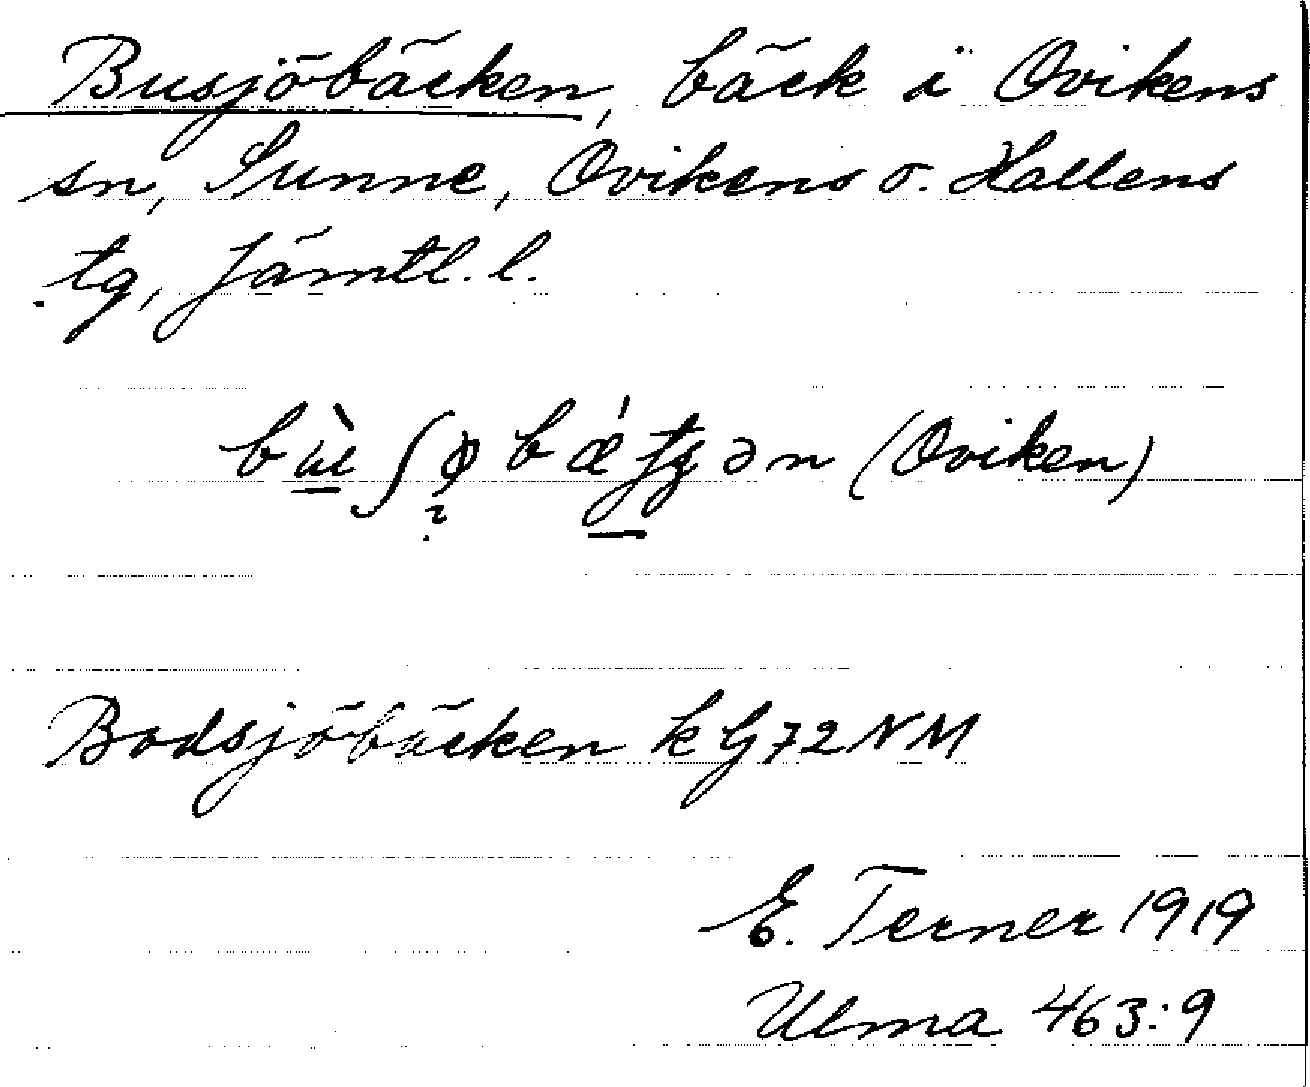 Busjöbäcken, bäck i Ovikens
sn, Sunne, Ovikens o. Hallens
tg, Jämtl. l.
(Oviken)
Bodsjöbäcken k G 72 NM
E. Terner 1919
Ulma 463:9